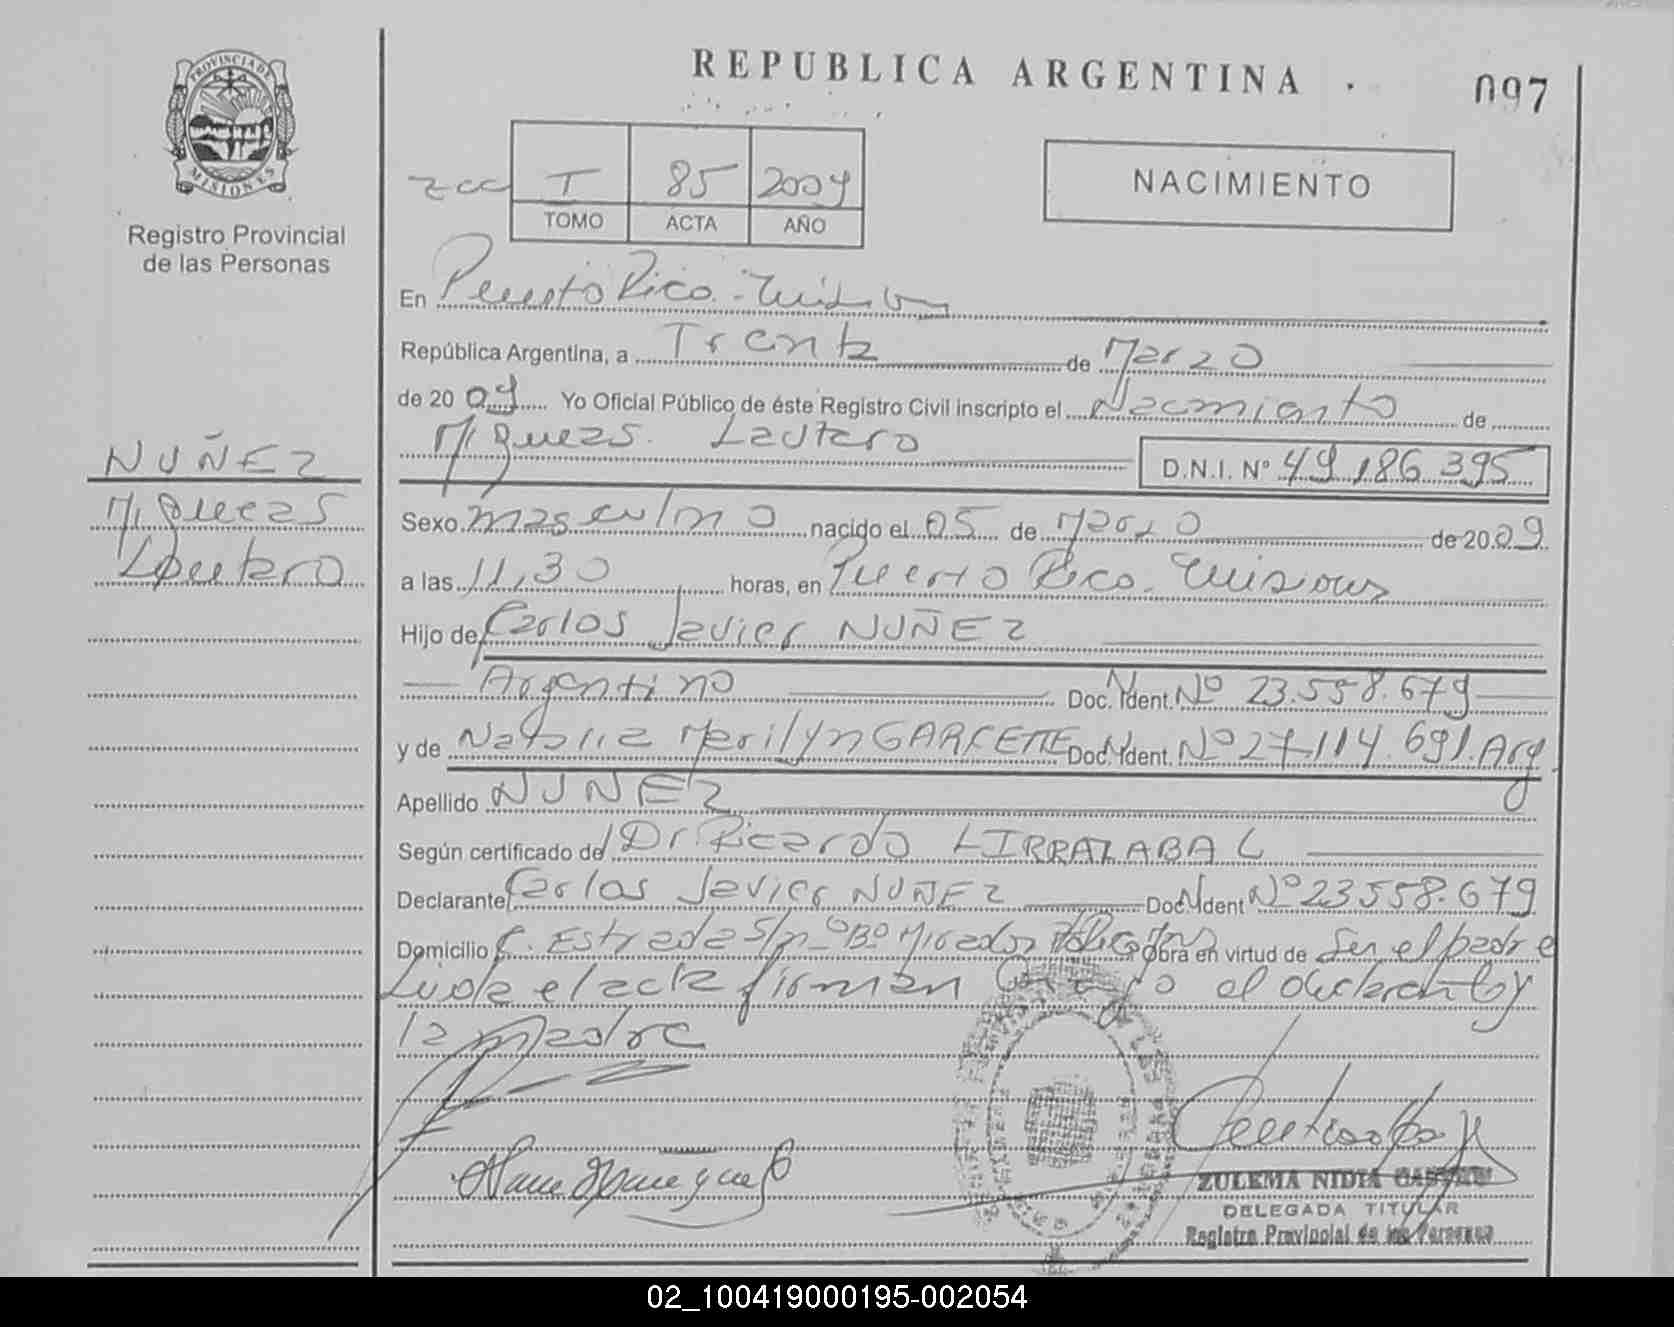 REPUBLICA ARGENTINA
097
PROVINCIA DE
MISIONES
Registro Provincial
de las Personas
I 85 2009
TOMO ACTA AÑO
NACIMIENTO
En Puerto Rico - Misiones
República Argentina, a Treinta de Marzo
de 2009 Yo Oficial Público de éste Registro Civil inscripto el Nacimiento de
Migueas Lautaro
D.N.I. Nº 49.186.395
NUÑEZ
Migueas
Lautaro
Sexo masculino nacido el 05 de Marzo de 2009
a las 11,30 horas, en Puerto Rico - Misiones
Hijo de Carlos Javier NUÑEZ
Argentino Doc. Ident. Nº 23.558.679
y de Natalia Marilyn Doc. Ident. Nº 27.114.691. Arg
Apellido NUÑEZ
Según certificado del Dr. Ricardo LIRRAZABAL
Declarante Carlos Javier NUÑEZ Doc. Ident Nº 23.558.679
Domicilio C. Estrada S/nº Bº Mirador Obra en virtud de ser el padre
Leida el acta firman el declarante y
la madre
ZULEMA NIDIA
DELEGADA TITULAR
Registro Provincial de las Personas
02_100419000195-002054